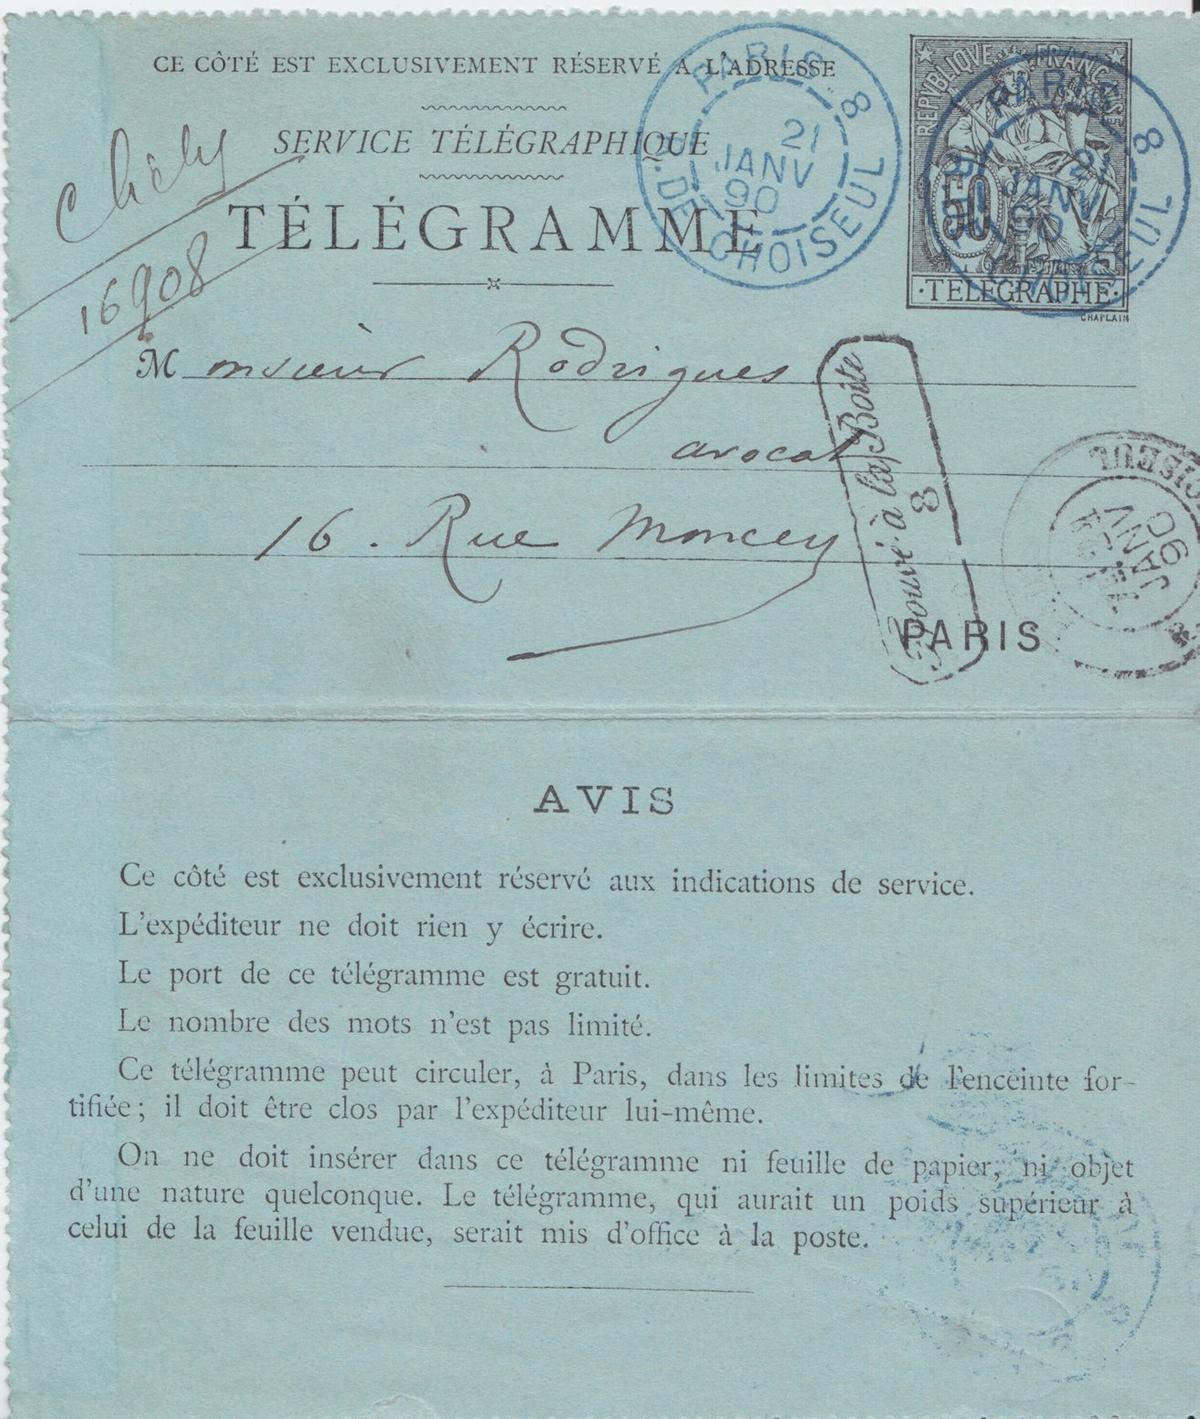 CE CÔTÉ EST EXCLUSIVEMENT RÉSERVÉ A L'ADRESSE
SERVICE TÉLÉGRAPHIQUE
TÉLÉGRAMME
Clichy
16908
PARIS 8
21
JANV
90
R. DE CHOISEUL
REPUBLIQUE FRANCAISE
50
TELEGRAPHE
CHAPLAIN
PARIS 8
21
JANV
90
CHOISEUL
Monsieur Rodrigues
avocat
16. Rue Moncey
Trouvé à la Boîte
8
PARIS
JANV
90
AVIS
Ce côté est exclusivement réservé aux indications de service.
L'expéditeur ne doit rien y écrire.
Le port de ce télégramme est gratuit.
Le nombre des mots n'est pas limité.
Ce télégramme peut circuler, à Paris, dans les limites de l'enceinte for-
tifiée; il doit être clos par l'expéditeur lui-même.
On ne doit insérer dans ce télégramme ni feuille de papier, ni objet
d'une nature quelconque. Le télégramme, qui aurait un poids supérieur à
celui de la feuille vendue, serait mis d'office à la poste.